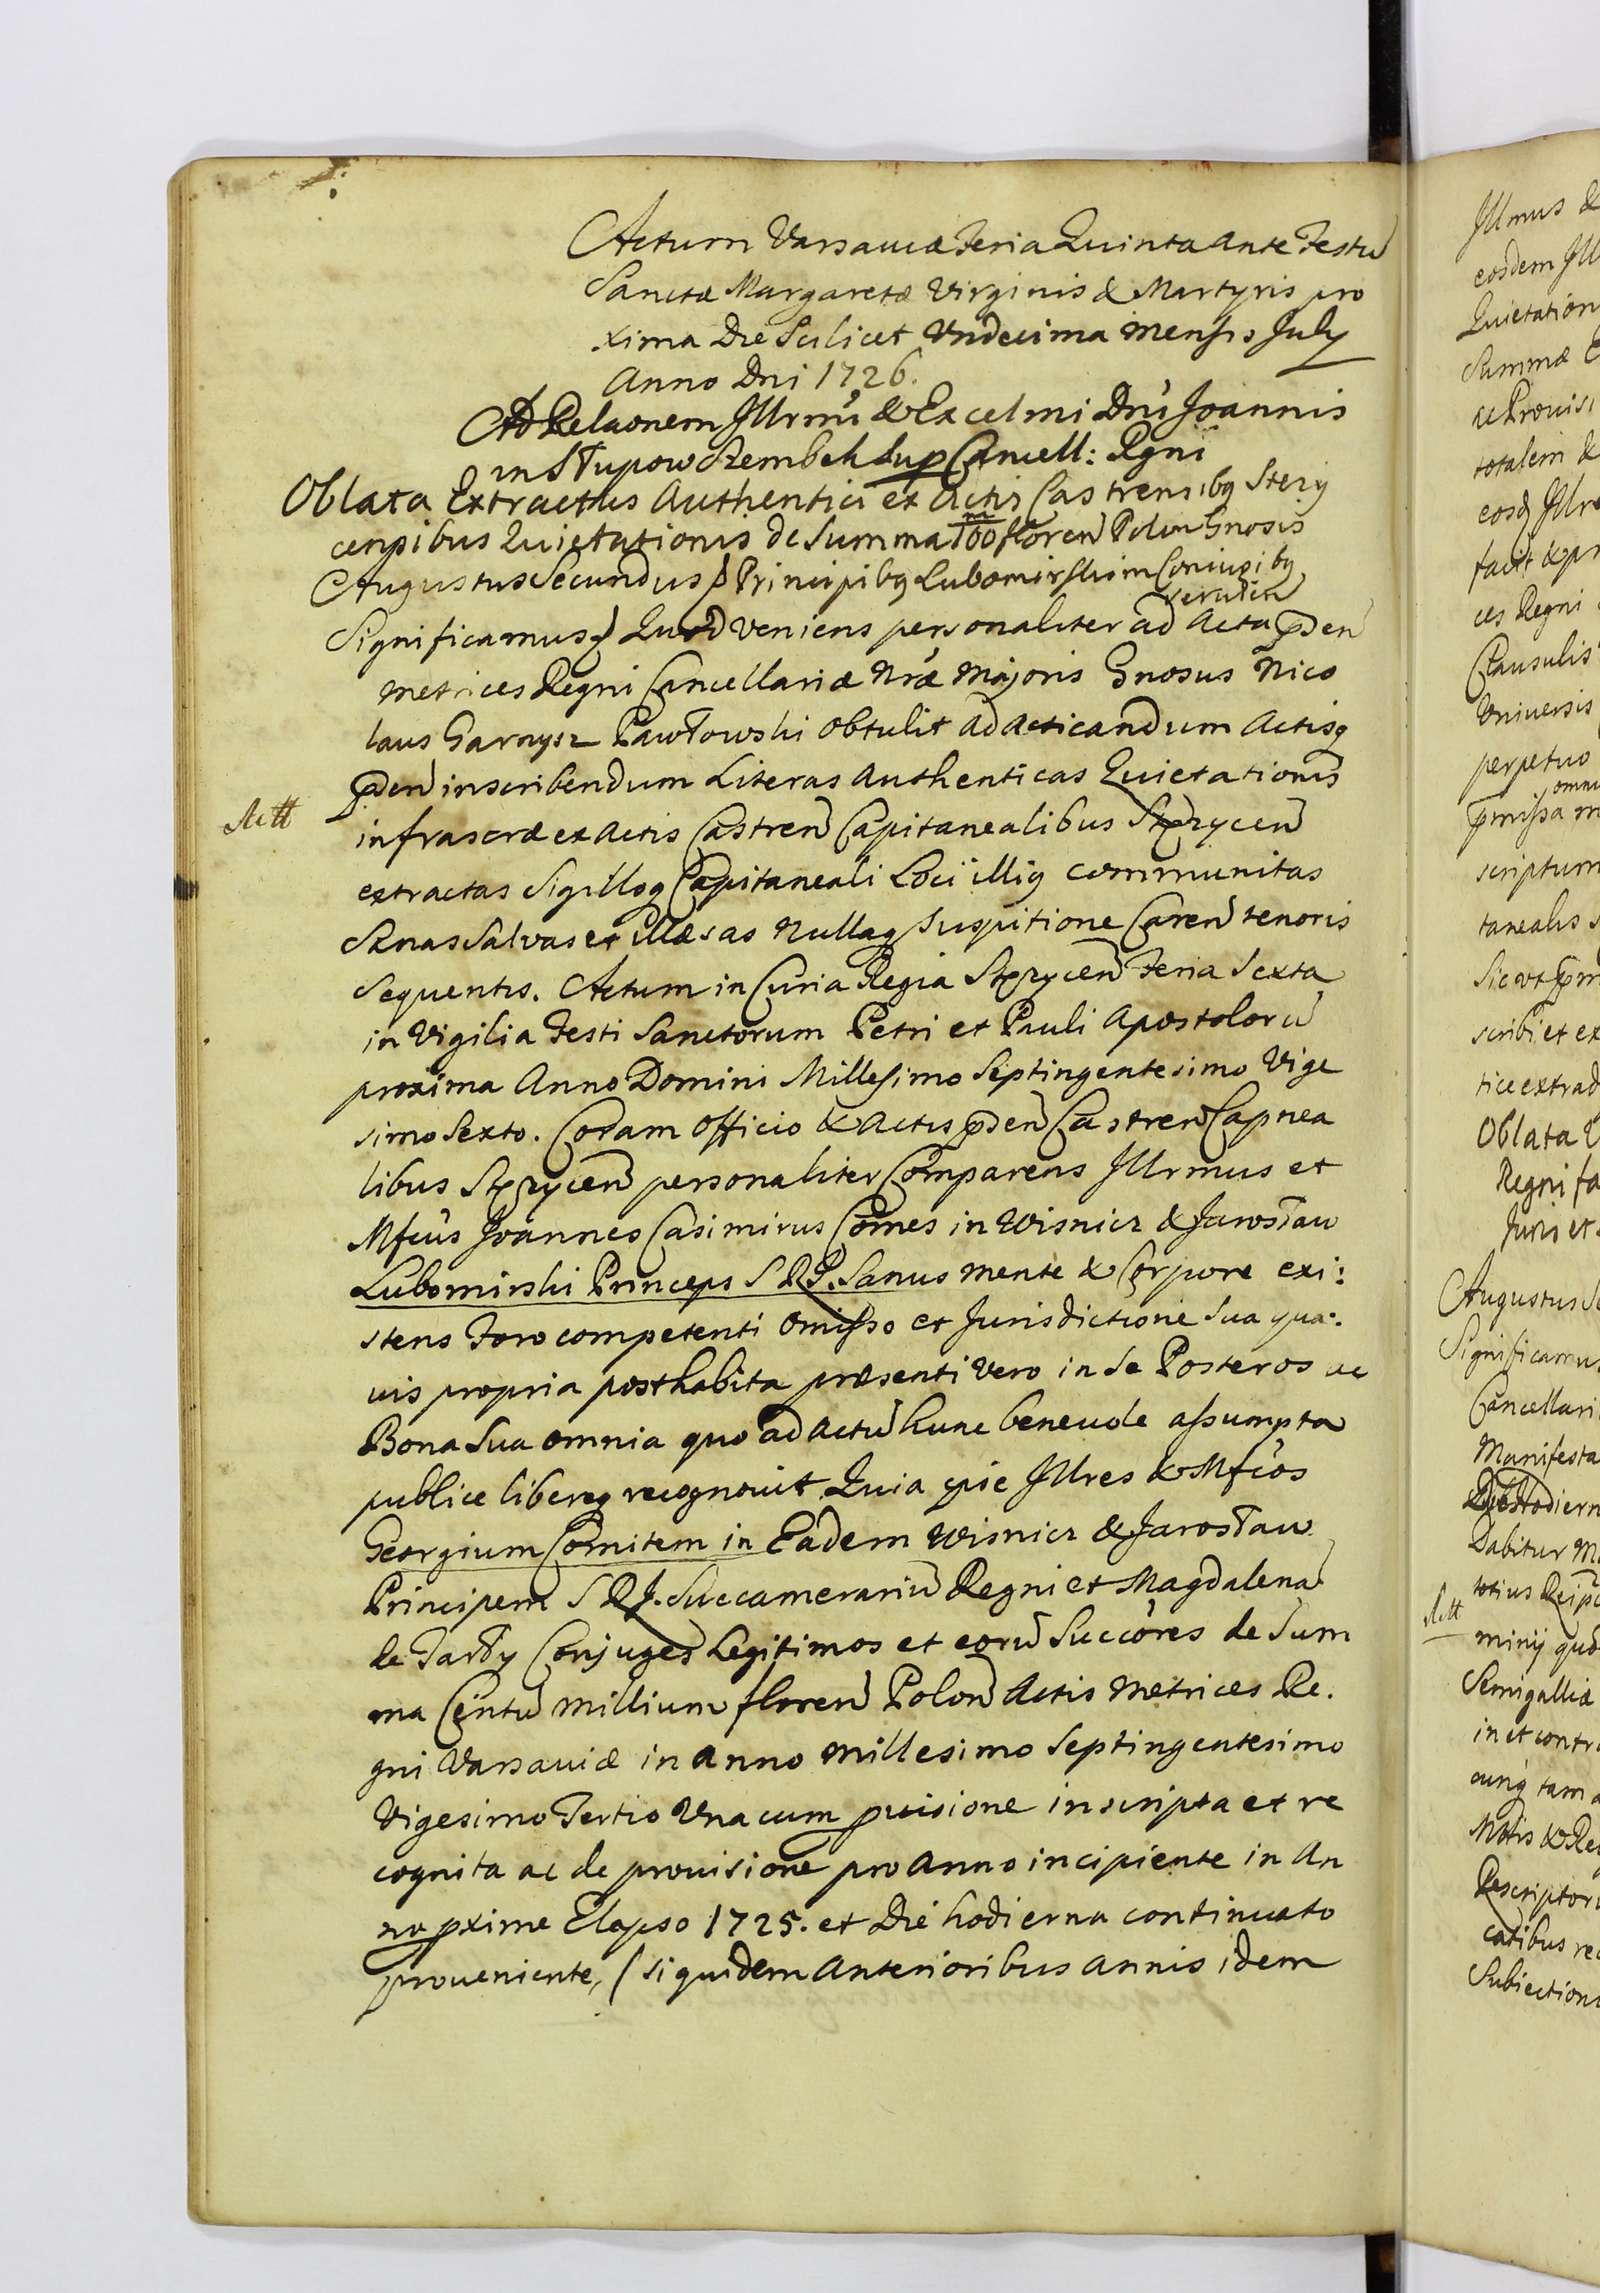 Actum Varsaviæ Feria Quinta ante Festũ
Sanctæ Margaretæ Virginis & Martyris pro
xima Die Scilicet Vndecima Mensis July
Anno Dni 1726.
Ad Relaonem Illrmi & Excelmi Dni Joannis
in Słupow Szembek Sup Cancell: Rgni
Oblata Extractus Authentici ex Actis Castrensibq Stezy
censibus Quietationis de Summa 100 floren Polon Gnosis
Augustus Secundus Principibq Lubomirskim Coniugibq
Significamus Quod veniens personaliter ad Acta pden
Metrices Regni Cancellariæ Nræ Majoris Gnosus Nico
laus Garnysz Pawłowski obtulit ad acticandum Actisq
pden inscribendum Literas Authenticas Quietationis
infrascræ ex Actis Castren Capitanealibus Stezycen
extractas Sigilloq Capitaneali Loci illiq communitas
Sanas Salvas et illæsas Nullaq suspitione Caren tenoris
Sequentis. Actum in Curia Regia Stezycen Feria Sexta
in Vigilia Festi Sanctorum Petri et Pauli Apostolorũ
proxima Anno Domini Millesimo Septingentesimo Vige
simo Sexto. Coram Officio & Actis pden Castren Capnea
libus Stezycen personaliter Comparens Illrmus et
Mfcus Joannes Casimirus Comes in Wisnicz & Jarosław
Lubomirski Princeps S R I. Sanus mente & Corpore exi:
stens Foro competenti omisso et Jurisdictione sua qua:
vis propria posthabita præsenti vero in se Posteros ac
Bona sua omnia quo ad actũ hunc benevole assumpta
publice libereq recognovit Quia ipse Illres & Mfcos
Georgium Comitem in Eadem Wisnicz & Jarosław
Principem S R I. Succamerariũ Regni et Magdalenã
de Tarły Conjuges Legitimos et eorũ Succores de Sum
ma Centũ millium floren Polon Actis Metrices Re.
gni Varsaviæ in Anno Millesimo Septingentesimo
Vigesimo Tertio Vna cum provisione inscripta et re
cognita ac de provisione pro anno incipiente in An
no pxime Elapso 1725. et Die hodierna continuato
proveniente, (siquidem anterioribus annis idem
Illmus &
eosdem Ill
Quietation
Summæ
ac Provisi
totalem &
eosq Illre
facit & pr
ces Regni
Clausulis
Vniversis
perpetuo
pmissa
scriptum
tanealis
scribi et ex
tice extrad
Oblata
Regni fa
Juris et
Augustus Se
Significamus
Cancellari
Manifesta
Dabitur
totius Reip
minij quo
Semigalliæ
in et contr
cunq tam a
Rescriptor
catibus re
Subiection